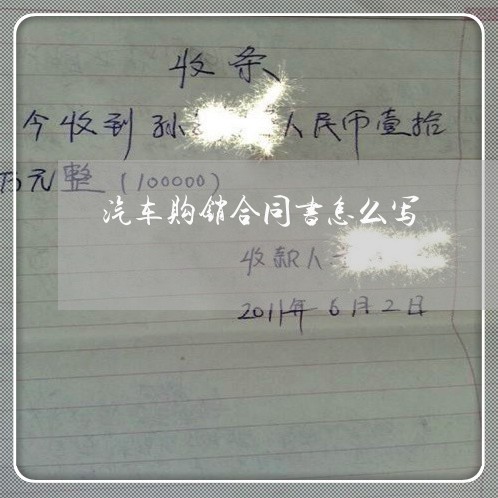 收条
今收到孙 人民币壹拾
万元整（100000）
汽车购销合同书怎么写
收款人
2011年6月2日